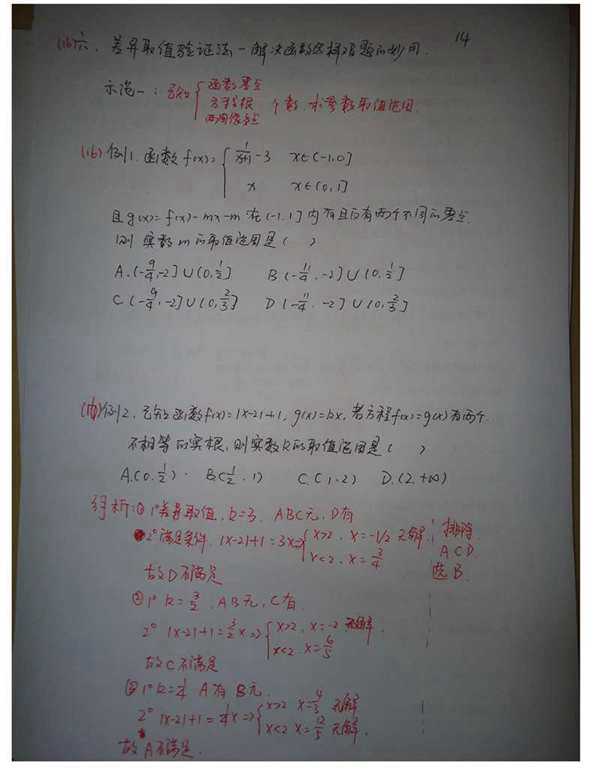 14
(16)六、差异取值验证法—解决函数选择题的妙用.
示范一：已知{函数零点 方程根 两图像交点 个数.求参数取值范围.
(16)例1.函数 f(x)= { 1/(x+1) -3 x∈(-1,0]
x x∈(0,1]
且g(x)=f(x)-mx-m在(-1,1]内有且仅有两个不同的零点.
则实数m的取值范围是( )
A.(-9/4,-2]∪(0,1/2] B(-11/4,-2]∪(0,1/2]
C.(-9/4,-2]∪(0,2/3] D(-11/4,-2]∪(0,2/3]
例2.已知函数f(x)=|x-2|+1, g(x)=kx, 若方程f(x)=g(x)有两个
不相等的实根,则实数k的取值范围是( )
A.(0,1/2). B.(1/2,1) C.(1,2) D.(2,+∞)
分析:①1°差异取值,k=3. ABC无,D有
2°满足条件. |x-2|+1=3x⇒{x>2, x=-1/2 无解; x<2, x=3/4
排除
ACD
选B.
故D不满足
②1° k=3/2. AB无,C有.
2° |x-2|+1=3/2x⇒{x>2, x=-2 无解. x<2 x=6/5
故C不满足
③1° k=1/4 A有B无.
2° |x-2|+1=1/4x⇒{x>2 x=4/3 无解 x<2 x=12/5 无解.
故A不满足.